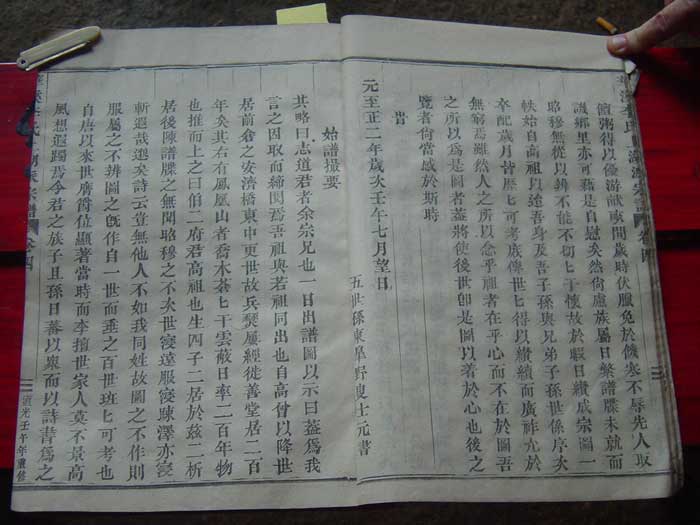 饘粥得以優游畎畝間歲時伏服免於饑寒不辱先人取
譏鄉里亦可藉是自慰矣然尙慮族屬日繁譜牒未就而
昭穆無從以辨不能不切匕于懷故於暇日纉成宗圖一
帙始自高祖以迄吾身及吾子孫與兄弟子孫世係序次
卒配歲月皆歷匕可考庶傳世匕得以續續而廣祚允於
無窮焉雖然人之所以念乎祖者在乎心而不在於圖吾
之所以爲是圖者蓋將使後世卽是圖以着於心也後之
覽者尙當感於斯時
旹
元至正二年歲次壬午七月望日
五世孫東臯野叟士元書
始譜撮要
其略曰志道君者余宗兄也一日出譜圖以示曰葢爲我
言之因取而締閱焉吾祖與若祖同出也自高曾以降世
居前倉之安濟橋東中更世故兵燹屢經徙善堂居二百
年矣其右有鳳凰山者喬木蒼匕干雲蔽日率二百年物
也推而上之曰伯二府君高祖也生四子二居於兹二析
居後陳譜牒之無聞昭穆之不次世寖遠服寖踈澤亦寖
斬遐哉邈矣詩云豈無他人不如我同姓故圖之不作則
服屬之不辨圖之旣作自一世而垂之百世班匕可考也
自唐以來世膺爵位顯著當時而李擅世家人莫不景高
風想遐躅焉今君之族子且孫日蕃以衆而以詩書爲之
卷四
道光壬午年重修